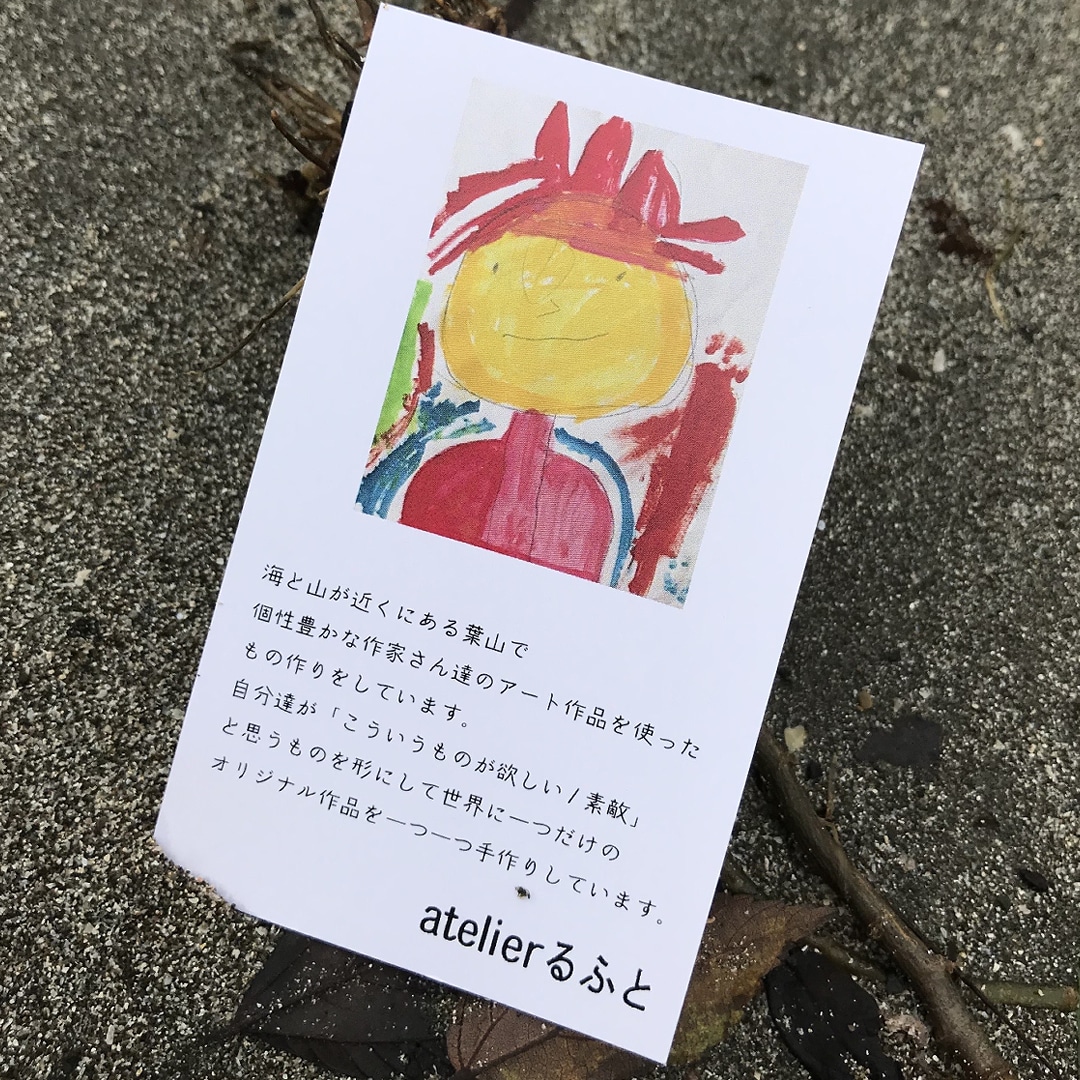 海と山が近くにある葉山で
個性豊かな作家さん達のアート作品を使った
もの作りをしています。
自分達が「こういうものが欲しい/素敵」
と思うものを形にして世界に一つだけの
オリジナル作品を一つ一つ手作りしています。
atelierるふと